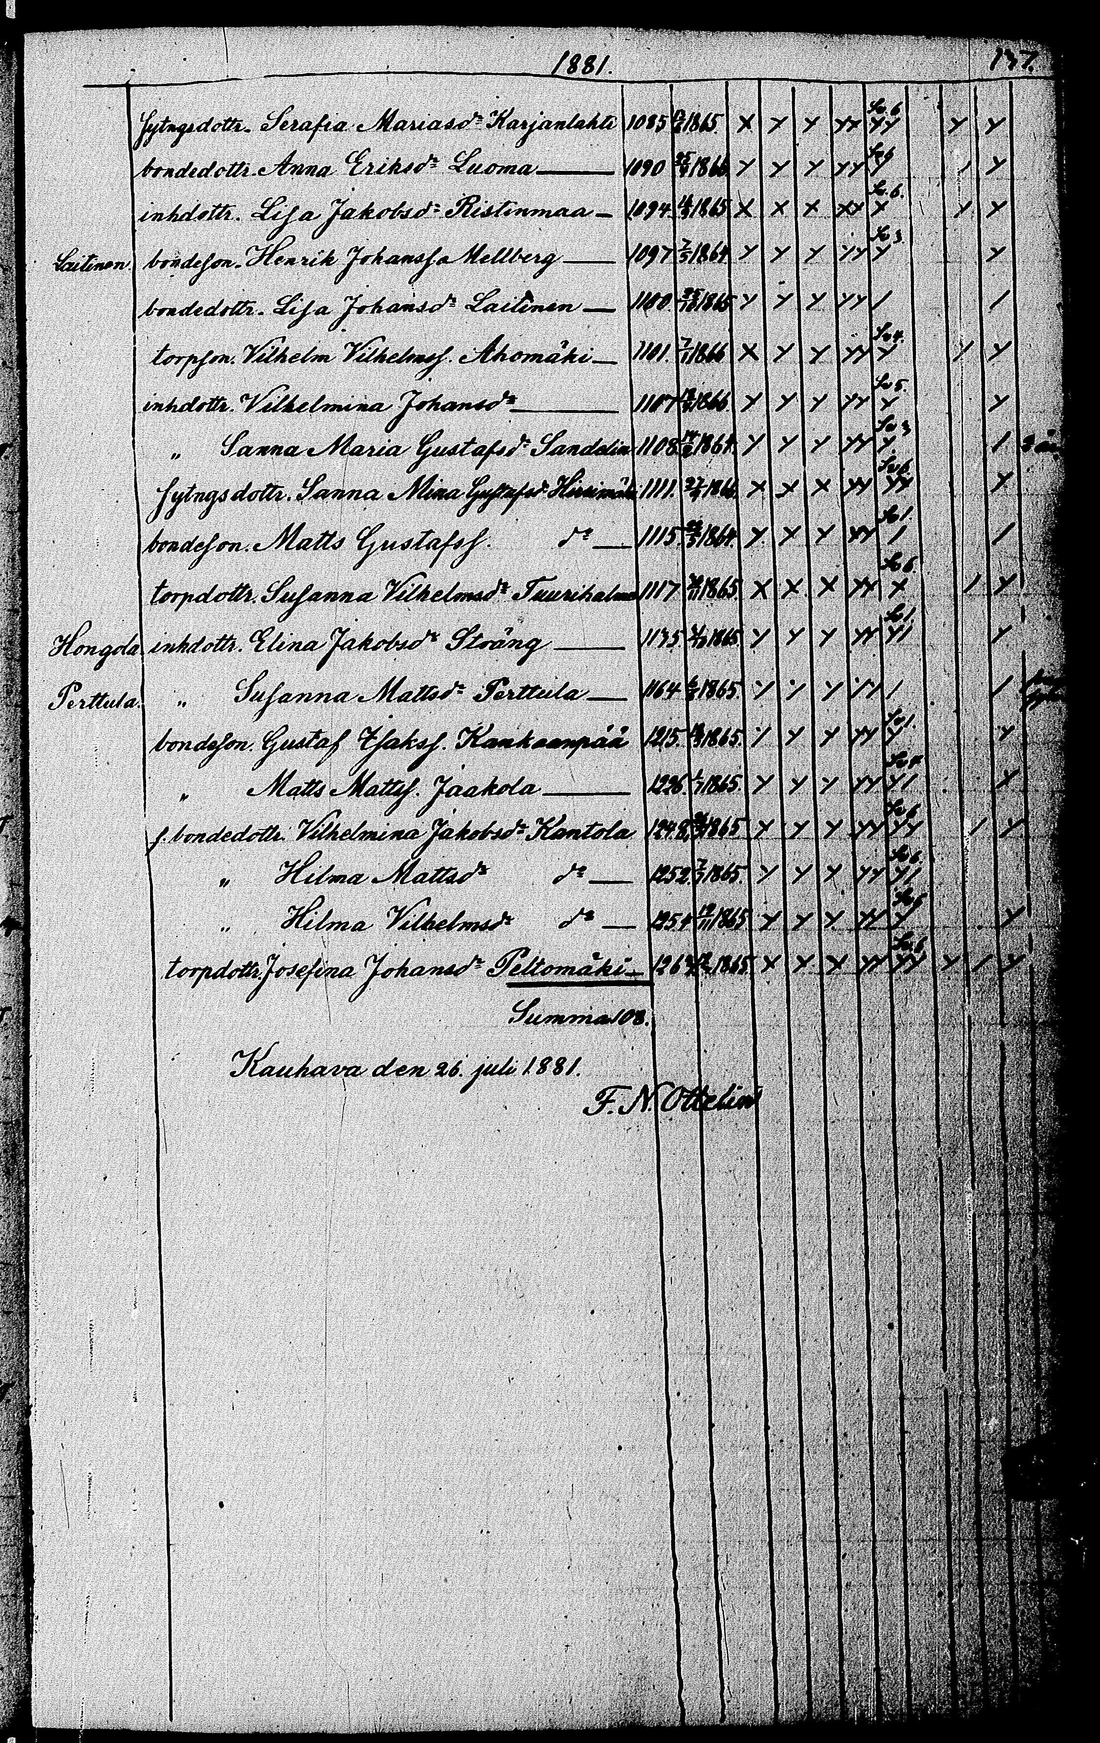 1881.
137.
sytngsdottr. Serafia Mariasdr Karjanlahti 1085 1865. X Y Y YY Sv. 6 YY Y Y
bondedottr. Anna Eriksdr Luoma 1090 1866 Y Y Y YY Y / Y
inhdottr. Lisa Jakobsdr Ristinmaa 1094 1865 X X X XX Sv. 6. X / Y
Laitinen bondeson. Henrik Johanss. Mellberg 1097 7/5 1864 Y Y Y YY Sv 3 Y Y
bondedottr. Lisa Johansdr Laitinen 1100. 1865 Y Y Y YY / /
torpson. Vilhelm Vilhelmss. Ahomäki 1101. 1866 X Y Y YY Sv 4. Y / Y
inhdottr. Vilhelmina Johansdr 1107 1866 Y Y Y YY Sv 5. Y Y
„ Sanna Maria Gustafsdr Sandelin 1108 1864. Y Y Y YY Sv 3 Y /
sytngsdottr. Sanna Mina Gustafsdr 1111. 1866. X X X YY YY Y
bondeson. Matts Gustafss. do 1115. 1864. Y Y Y YY Sv 1. / /
torpdottr. Susanna Vilhelmsdr 1117 1865 X X X YY Sv 6. X / Y
Hongola inhdottr. Elina Jakobsdr Sträng 1135 1865 Y Y Y YY Sv 1. Y/ Y
Perttula. „ Susanna Mattsdr Perttula 1164 1865. Y Y Y YY / /
bondeson. Gustaf Isakss. Kankaanpää 1215. 1865. Y Y Y YY Sv 1. Y Y
„ Matts Mattss. Jaakola 1226 1865. Y Y Y YY Sv 4 Y/ Y
f. bondedottr. Vilhelmina Jakobsdr Kantola 1248 1865 Y Y Y YY Sv 6 YY / Y
„ Hilma Mattsdr do 1252 1865. Y Y Y YY Sv 6 Y/
„ Hilma Vilhelmsdr do 1254 1865 Y Y Y YY Y Y
torpdottr Josefina Johansdr Peltomäki 1865. X X X YY Sv. 6 YY Y / Y
Summa 108.
Kauhava den 26. juli 1881.
F. N. Ottelin